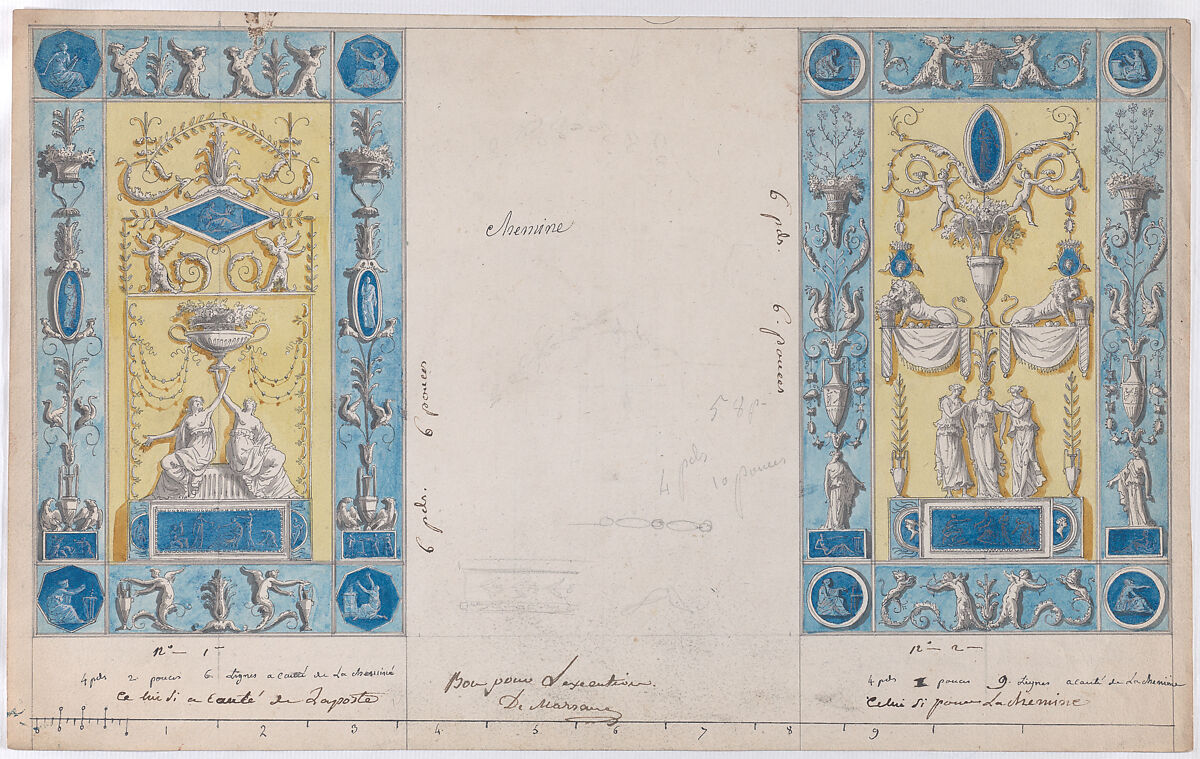 chemine
6 pds. 6 pouces
6 pds. 6. pouces
5 8 p-
4 pds
10 pouces
No 1-
4 pds 2 pouces 6 Lignes a cauté de La cheminé
Ce lui Si a Cauté de Laposte
Bon pour L'execution.
De Marsane
No 2-
4 pds pouces 9. Lignes a cauté de La chemine
Celui Si pour La chemine
1 2 3 4 5 6 7 8 9